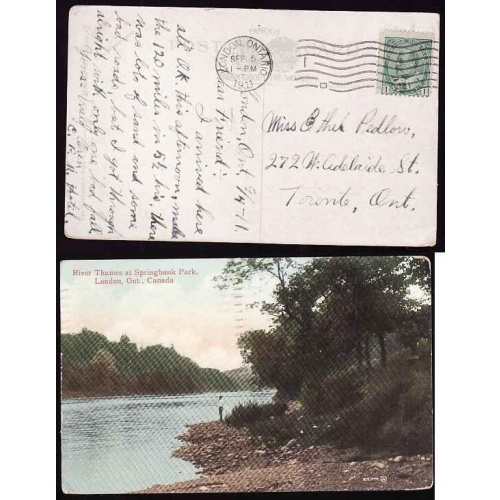 POST CARD
LONDON, ONTARIO
SEP 5
1 - PM
1911
London, Ont.
Dear Friend:
I arrived here
all OK this afternoon, made
the 120 miles in 8½ hrs, there
was lots of sand and some
bad roads, but I got through
alright with only one bad fall
Miss Ethel Pedlow,
272 W. Adelaide St.
Toronto, Ont.
River Thames at Springbank Park,
London, Ont., Canada